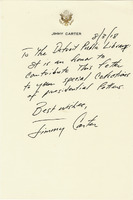 JIMMY CARTER
8/8/18
To The Detroit Public Library
It is an honor to
contribute this letter
to your special collections
of presidential letters
Best wishes,
Jimmy Carter